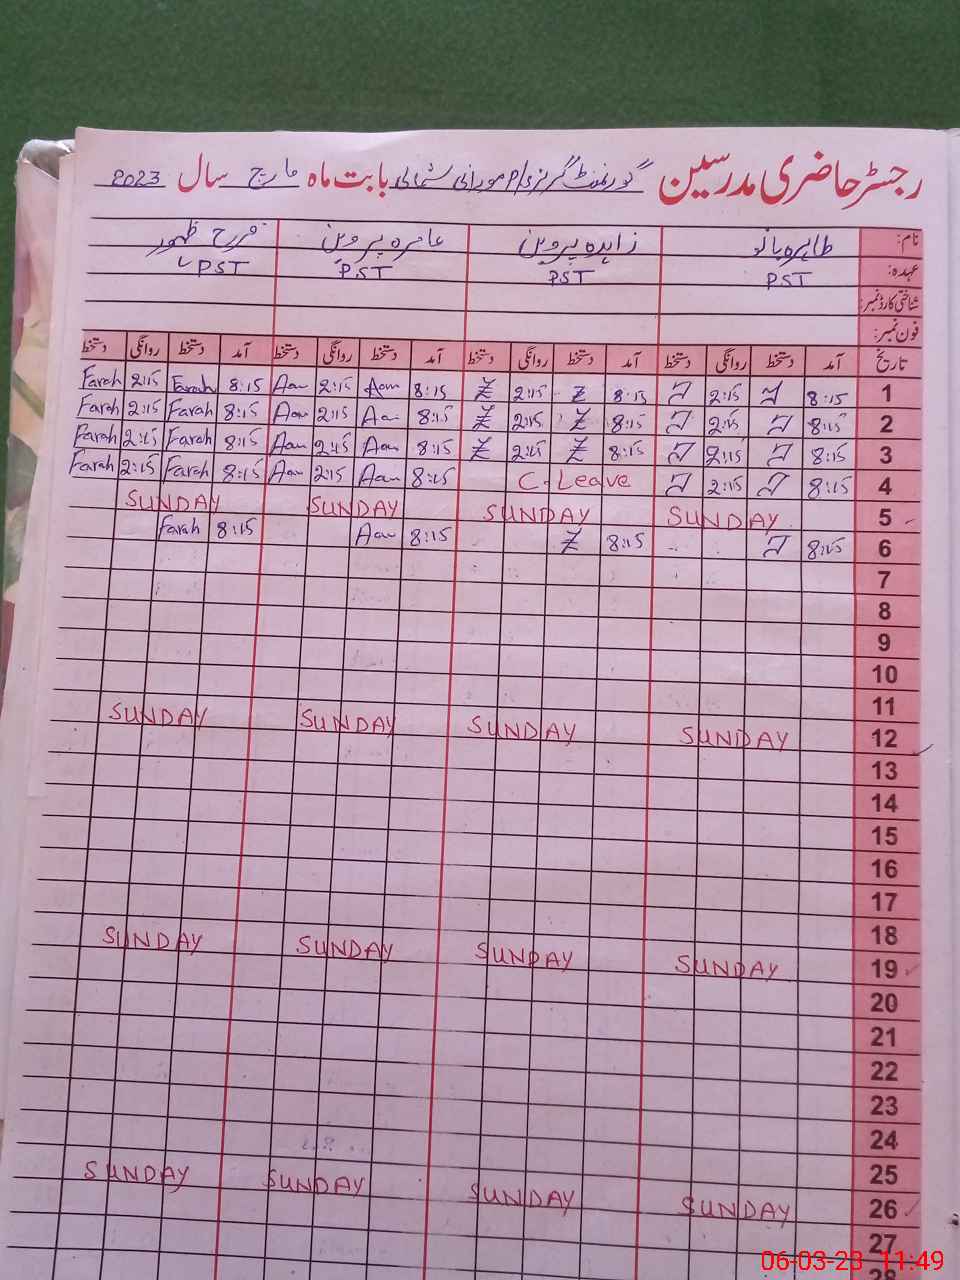 رجسٹر حاضری مدرسین گورنمنٹ گرلز پرائمری سکول مورانی شمالی بابت ماہ مارچ سال 2023
نام: طاہرہ بانو زاہدہ پروین عامرہ پروین فرح ظہور
عہدہ: PST PST PST PST
شناختی کارڈ نمبر:
فون نمبر:
تاریخ آمد دستخط روانگی دستخط آمد دستخط روانگی دستخط آمد دستخط روانگی دستخط آمد دستخط روانگی دستخط
1 8:15 2:15 8:15 Z 2:15 Z 8:15 Aam 2:15 Aam 8:15 Farah 2:15 Farah
2 8:15 2:15 8:15 Z 2:15 Z 8:15 Aam 2:15 Aam 8:15 Farah 2:15 Farah
3 8:15 2:15 8:15 Z 2:15 Z 8:15 Aam 2:15 Aam 8:15 Farah 2:15 Farah
4 8:15 2:15 C-Leave 8:15 Aam 2:15 Aam 8:15 Farah 2:15 Farah
5 SUNDAY SUNDAY SUNDAY SUNDAY
6 8:15 8:15 Z 8:15 Aam 8:15 Farah
7
8
9
10
11
12 SUNDAY SUNDAY SUNDAY SUNDAY
13
14
15
16
17
18
19 SUNDAY SUNDAY SUNDAY SUNDAY
20
21
22
23
24
25
26 SUNDAY SUNDAY SUNDAY SUNDAY
27
28
06-03-23 11:49